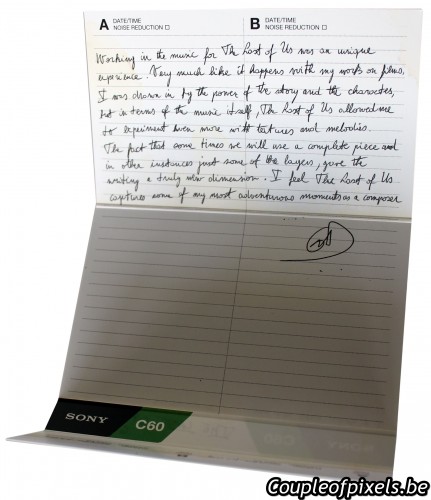 A DATE/TIME
NOISE REDUCTION □
B DATE/TIME
NOISE REDUCTION □
Working in the music for The Last of Us was an unique
experience. Very much like it happens with my works on films,
I was drawn in by the power of the story and the characters,
but in terms of the music itself, The Last of Us allowed me
to experiment even more with textures and melodies.
The fact that some times we will use a complete piece and
in other instances just some of the layers, gave the
writing a truly new dimension. I feel The Last of Us
captures some of my most adventurous moments as a composer
SONY C60
Coupleofpixels.be